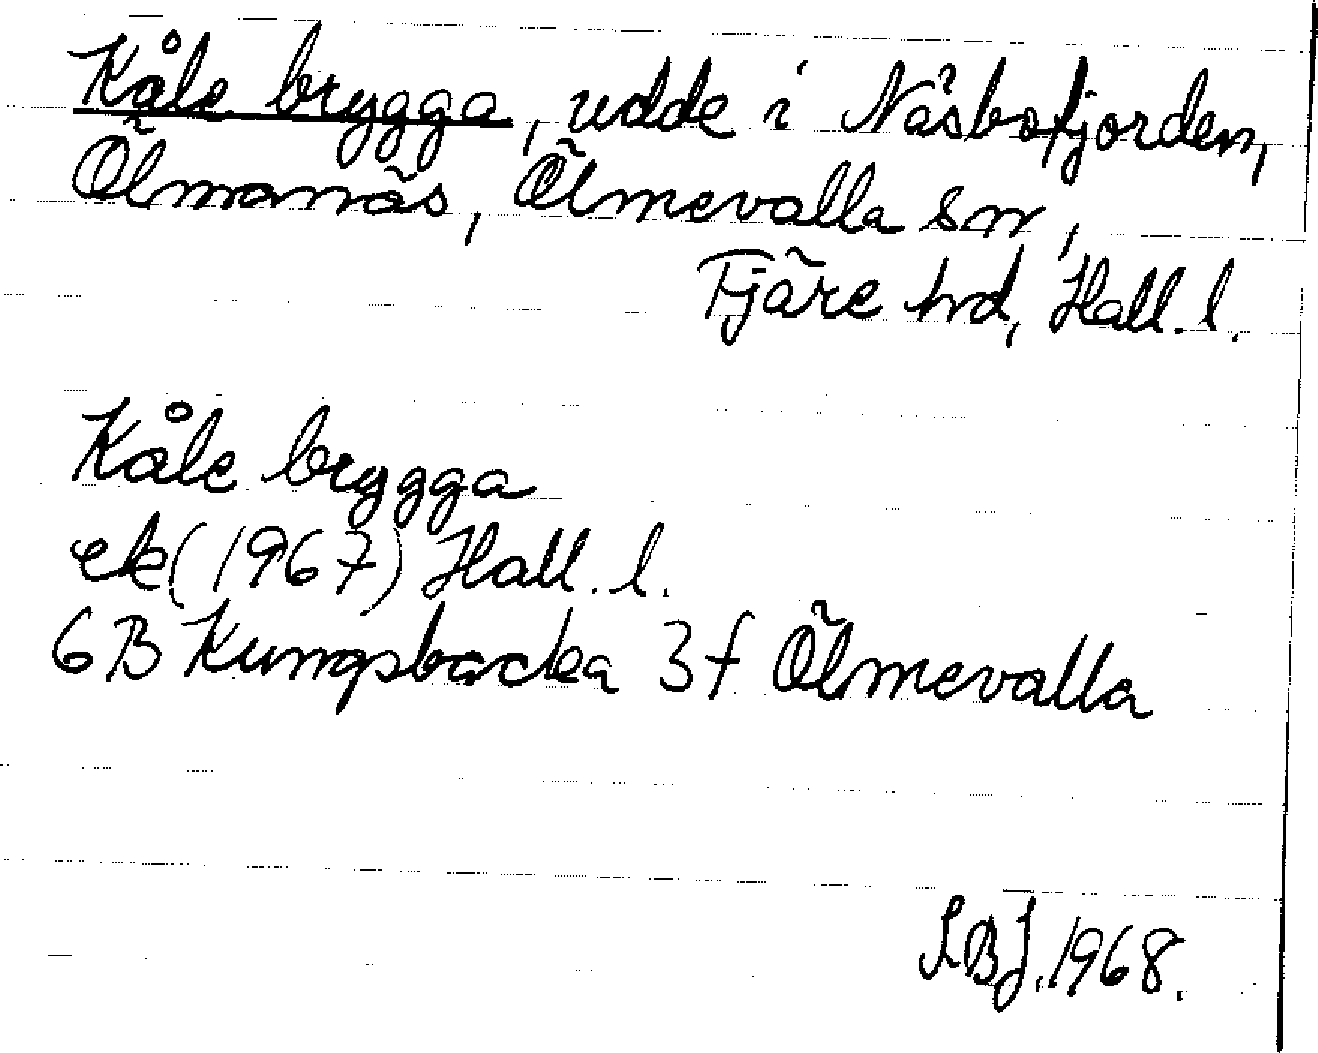 Kåle brygga, udde i Näsbofjorden,
Ölmanäs, Ölmevalla sn,
Fjäre hd, Hall. l.
Kåle brygga
ek (1967) Hall. l.
6B Kungsbacka 3f Ölmevalla
SBJ. 1968.